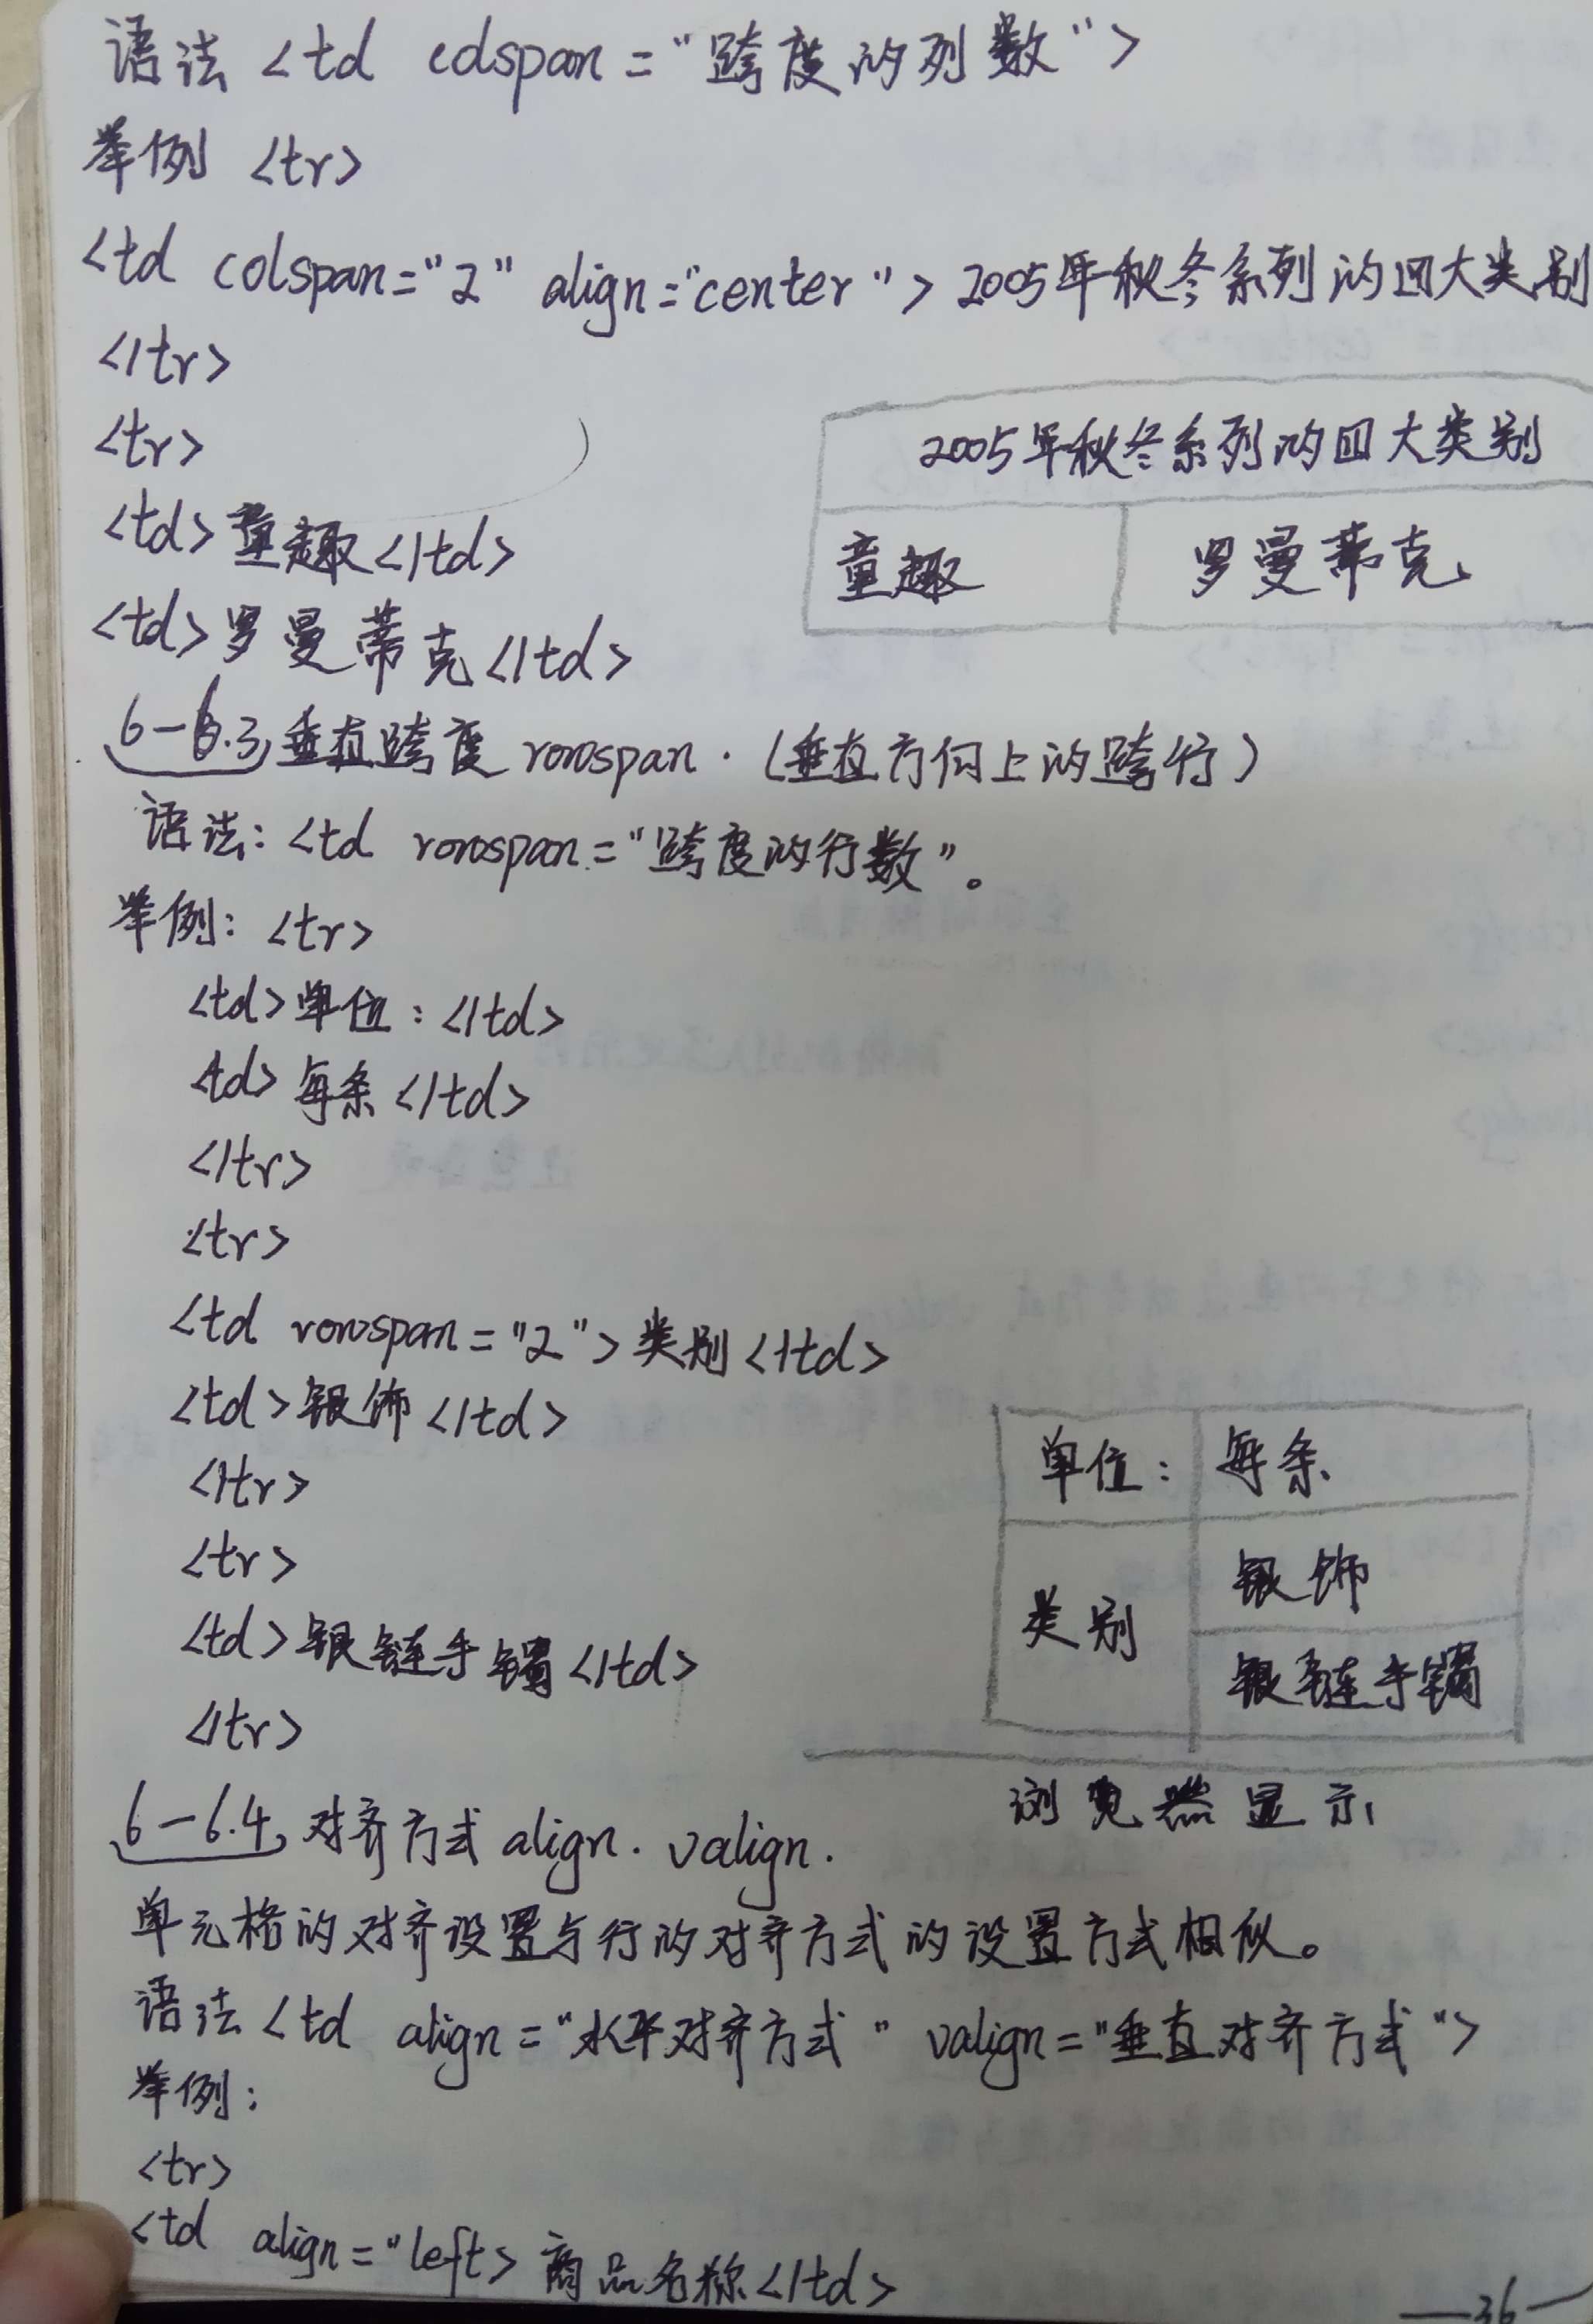 语法 <td colspan = "跨度的列数">
举例 <tr>
<td colspan="2" align="center"> 2005年秋冬系列的四大类别
</tr>
<tr>
<td>童趣</td>
<td>罗曼蒂克</td>
2005年秋冬系列的四大类别
童趣 罗曼蒂克
6-6.3 垂直跨度 rowspan.(垂直方向上的跨行)
语法: <td rowspan="跨度的行数"。
举例: <tr>
<td>单位:</td>
<td>每条</td>
</tr>
<tr>
<td rowspan="2">类别</td>
<td>银饰</td>
</tr>
<tr>
<td>银链手镯</td>
</tr>
单位: 每条
类别 银饰
银链手镯
浏览器显示
6-6.4 对齐方式 align. valign.
单元格的对齐设置与行的对齐方式的设置方式相似。
语法 <td align="水平对齐方式" valign="垂直对齐方式">
举例:
<tr>
<td align="left> 商品名称</td>
—36—